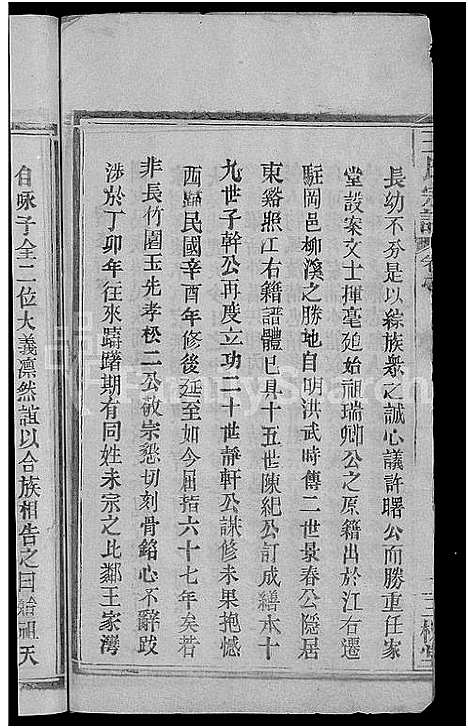 長幼不分是以綜族衆之誠心議許曙公而勝重任家
堂設案文士揮毫廸始祖瑞卿公之原籍出於江右遷
駐岡邑柳溪之勝地自明洪武時傳二世景春公隱居
東谿照江右籍譜體已具十五世陳紀公訂成繕本十
九世子幹公再度立功二十世靜軒公謀修未果抱憾
西歸民國辛酉年修後延至如今屈指六十七年矣若
非長竹園玉先孝松二公敬宗懇切刻骨銘心不辭跋
涉於丁卯年往來躋躇期有同姓未宗之比鄰王家灣
自咏子全二位大義凛然誼以合族相告之曰始祖天
王氏宗譜
三槐堂
FamilySearch